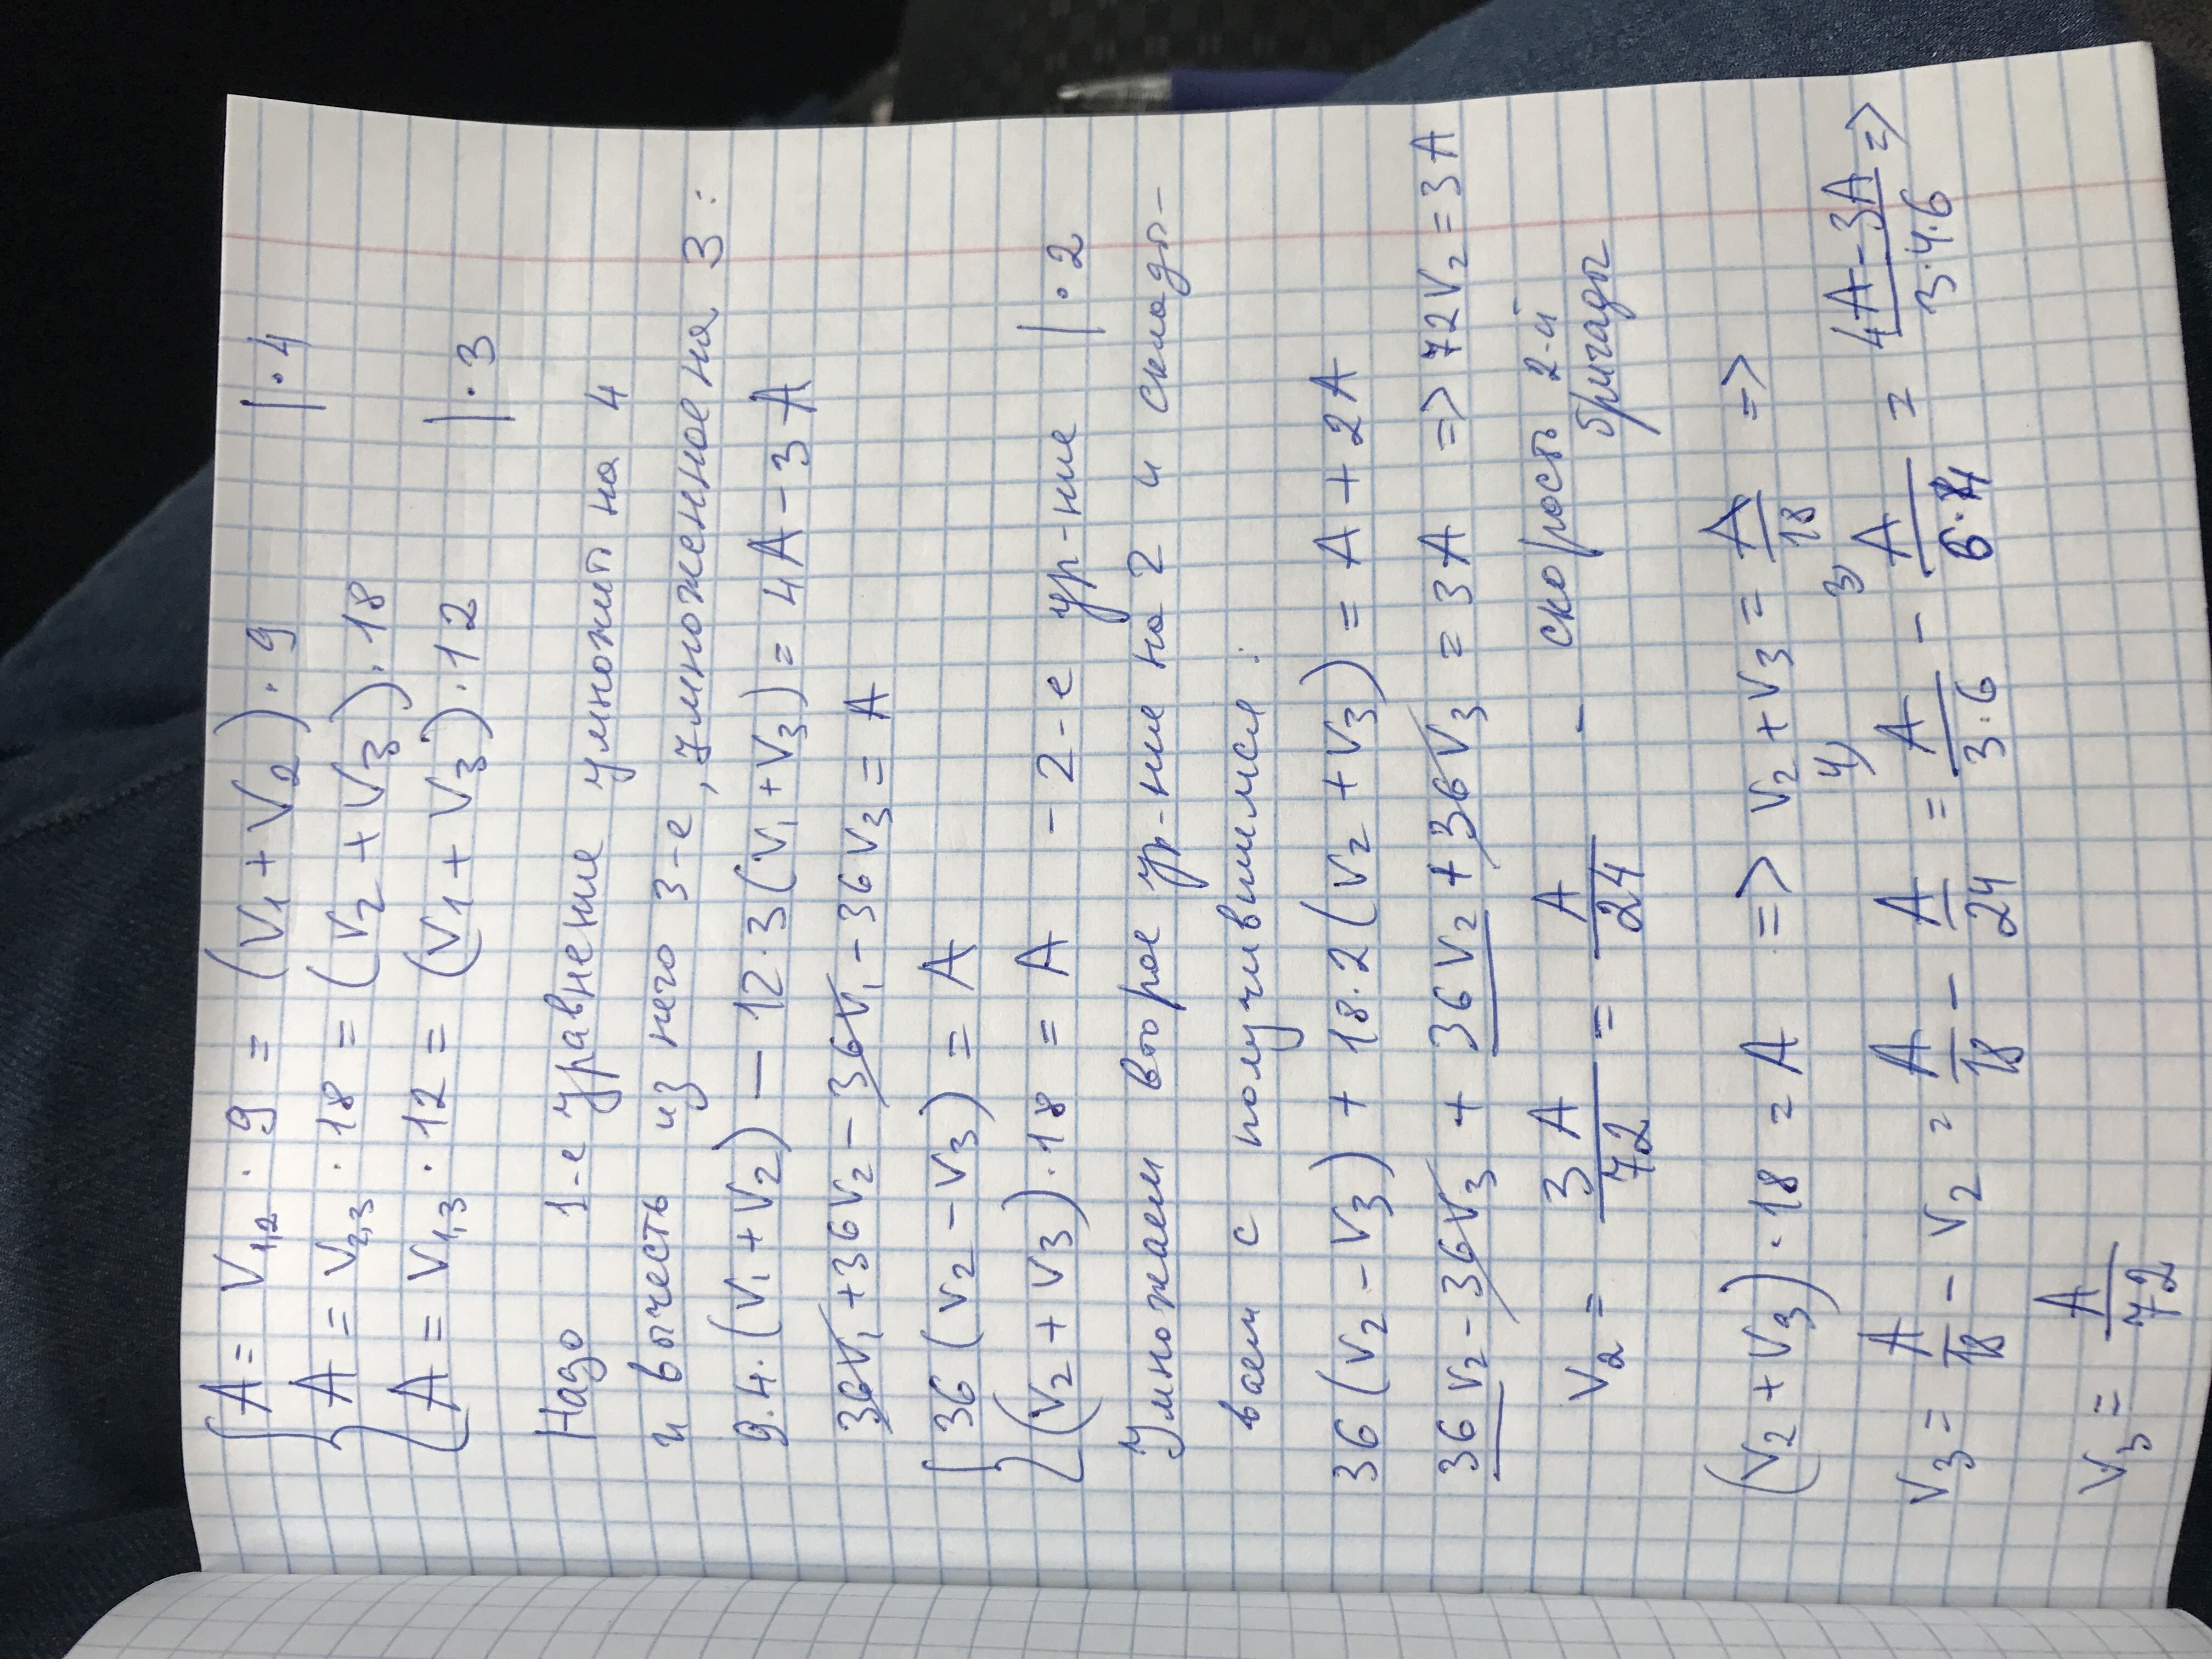 A = V₁,₂ · 9 = (V₁ + V₂) · 9 | · 4
A = V₂,₃ · 18 = (V₂ + V₃) · 18
A = V₁,₃ · 12 = (V₁ + V₃) · 12 | · 3
Надо 1-е уравнение умножить на 4
и вычесть из него 3-е, умноженное на 3:
9·4·(V₁ + V₂) − 12·3(V₁ + V₃) = 4A − 3A
36V₁ + 36V₂ − 36V₁ − 36V₃ = A
36(V₂ − V₃) = A
(V₂ + V₃) · 18 = A − 2-е ур-ние | · 2
Умножаем второе ур-ние на 2 и склады-
ваем с получившимся:
36(V₂ − V₃) + 18·2(V₂ + V₃) = A + 2A
36V₂ − 36V₃ + 36V₂ + 36V₃ = 3A => 72V₂ = 3A
V₂ = 3A/72 = A/24 − скорость 2-й
бригады
(V₂ + V₃) · 18 = A => V₂ + V₃ = A/18 =>
V₃ = A/18 − V₂ = A/18 − A/24 = ⁴⁾A/3·6 − ³⁾A/6·4 = 4A−3A/3·4·6 =>
V₃ = A/72